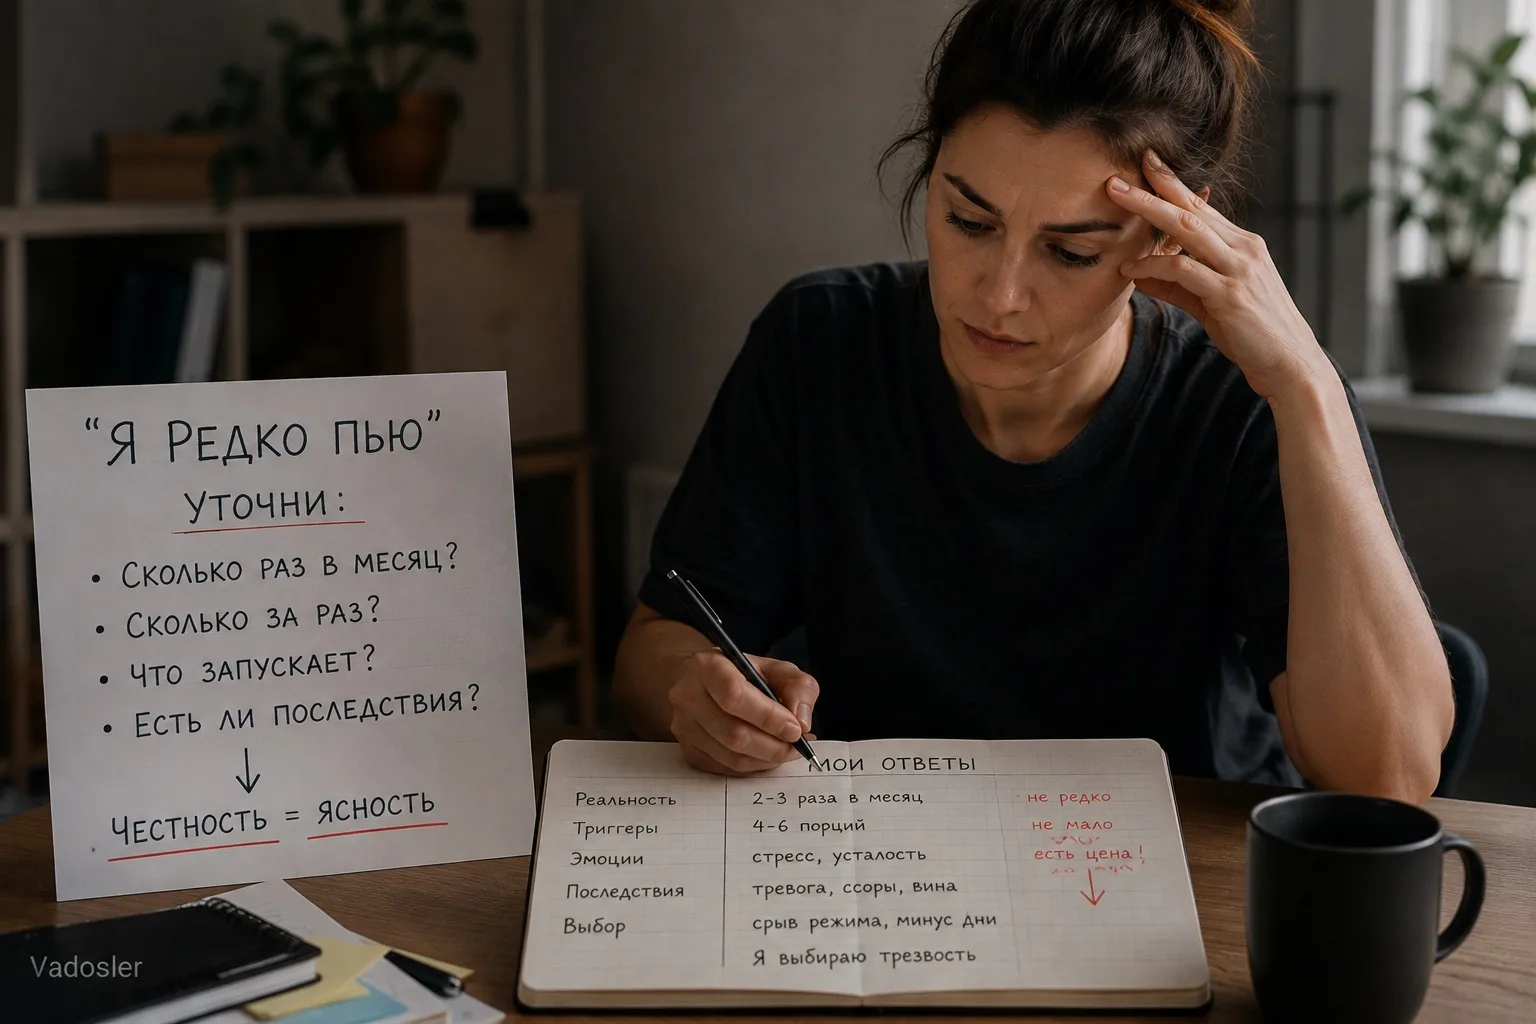 “Я РЕДКО ПЬЮ”
УТОЧНИ:
• СКОЛЬКО РАЗ В МЕСЯЦ?
• СКОЛЬКО ЗА РАЗ?
• ЧТО ЗАПУСКАЕТ?
• ЕСТЬ ЛИ ПОСЛЕДСТВИЯ?
↓
ЧЕСТНОСТЬ = ЯСНОСТЬ
МОИ ОТВЕТЫ
Реальность 2-3 раза в месяц не редко
Триггеры 4-6 порций не мало
Эмоции стресс, усталость есть цена!
Последствия тревога, ссоры, вина
Выбор срыв режима, минус дни
Я выбираю трезвость
Vadosler